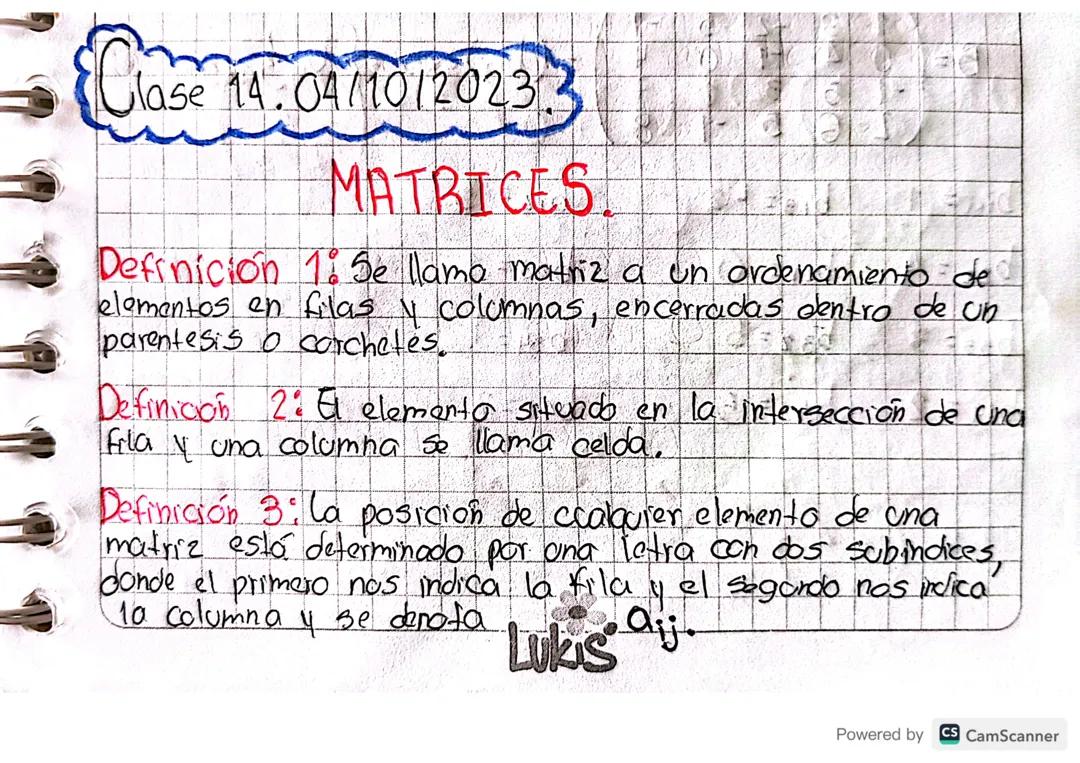 Clase 14. 04/10/2023.
MATRICES.
Definición 1: Se llama matriz a un ordenamiento de
elementos en filas y columnas, encerradas dentro de un
parentesis o corchetes.
Definicioń 2: El elemento situado en la intersección de una
fila y una columna se llama celda.
Definición 3: La posicioń de cualquier elemento de una
matriz está determinado por una letra con dos subindices,
donde el primero nos indica la fila y el segundo nos indica
la columna y se denota aij.
LUKIS
Powered by CS CamScanner